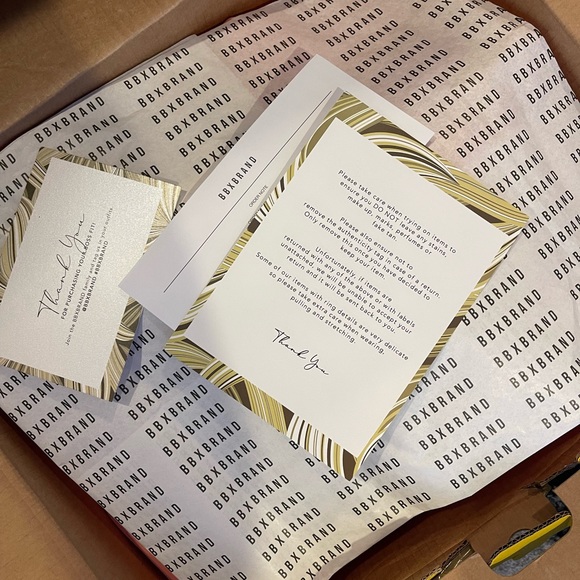 Thank You
FOR PURCHASING YOUR BOSS FIT!
Join the BBXBRAND family and tag us in your outfits
@BBXBRAND #BBXBRAND
BBXBRAND
ORDER NOTE
Please take care when trying on items to
ensure you DO NOT leave any stains,
make up, marks, perfumes or
fake tan.
Please also ensure not to
remove the authenticity tag in case of a return.
Only remove this once you have decided to
keep your item.
Unfortunately, if items are
returned with any of the above or with labels
detached, we will be unable to accept your
return and it will be sent back to you.
Some of our items with ring details are very delicate
so please take extra care when wearing,
pulling and stretching.
Thank You
BBXBRAND BBXBRAND BBXBRAND
BBXBRAND BBXBRAND BBXBRAND
BBXBRAND BBXBRAND BBXBRAND